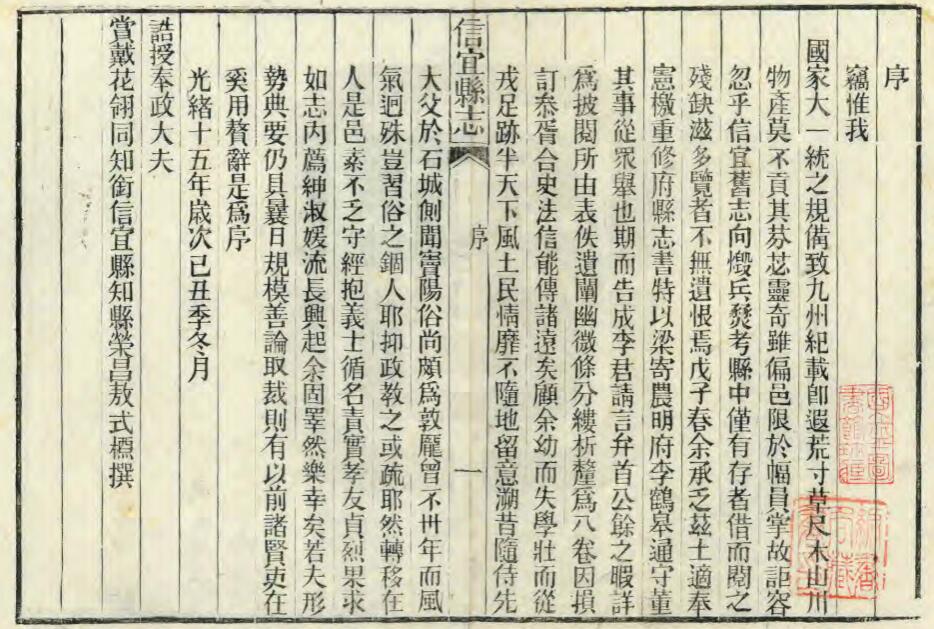 序
竊惟我
國家大一統之規備致九州紀載卽遐荒寸草尺木山川
物產莫不貢其芬苾靈奇雖偏邑限於幅員掌故詎容
忽乎信宜舊志向燬兵燹考縣中僅有存者借而閱之
殘缺滋多覽者不無遺恨焉戊子春余承乏茲土適奉
憲檄重修府縣志書特以梁寄農明府李鶴皋通守董
其事從眾舉也期而告成李君請言弁首公餘之暇詳
爲披閱所由表佚遺闡幽微條分縷析釐爲八卷因損
訂叅胥合史法信能傳諸遠矣顧余幼而失學壯而從
戎足跡半天下風土民情靡不隨地留意溯昔隨侍先
信宜縣志
序
一
大父於石城側聞竇陽俗尚頗爲敦龐曾不卅年而風
氣迥殊豈習俗之錮人耶抑政教之或疏耶然轉移在
人是邑素不乏守經抱義士循名責實孝友貞烈果求
如志內薦紳淑媛流長興起余固睪然樂幸矣若夫形
勢典要仍具曩日規模善論取裁則有以前諸賢吏在
奚用贅辭是爲序
光緒十五年歲次己丑季冬月
誥授奉政大夫
賞戴花翎同知銜信宜縣知縣榮昌敖式槱撰